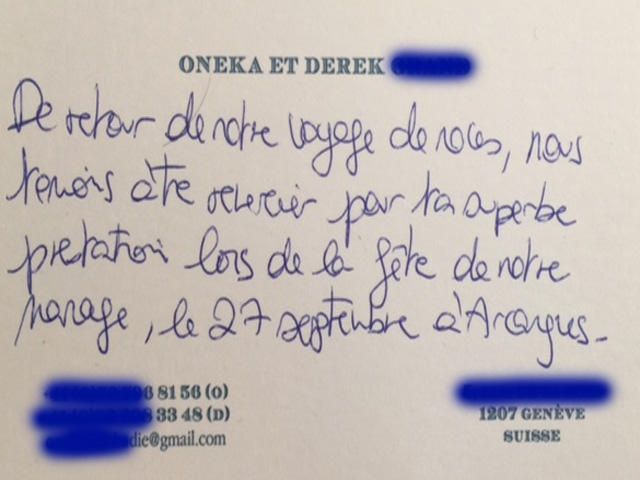 ONEKA ET DEREK
De retour de notre voyage de noces, nous
tenions à te remercier pour ta superbe
prestation lors de la fête de notre
mariage, le 27 septembre à Arcangues.
6 81 56 (O)
33 48 (D)
die@gmail.com
1207 GENÈVE
SUISSE